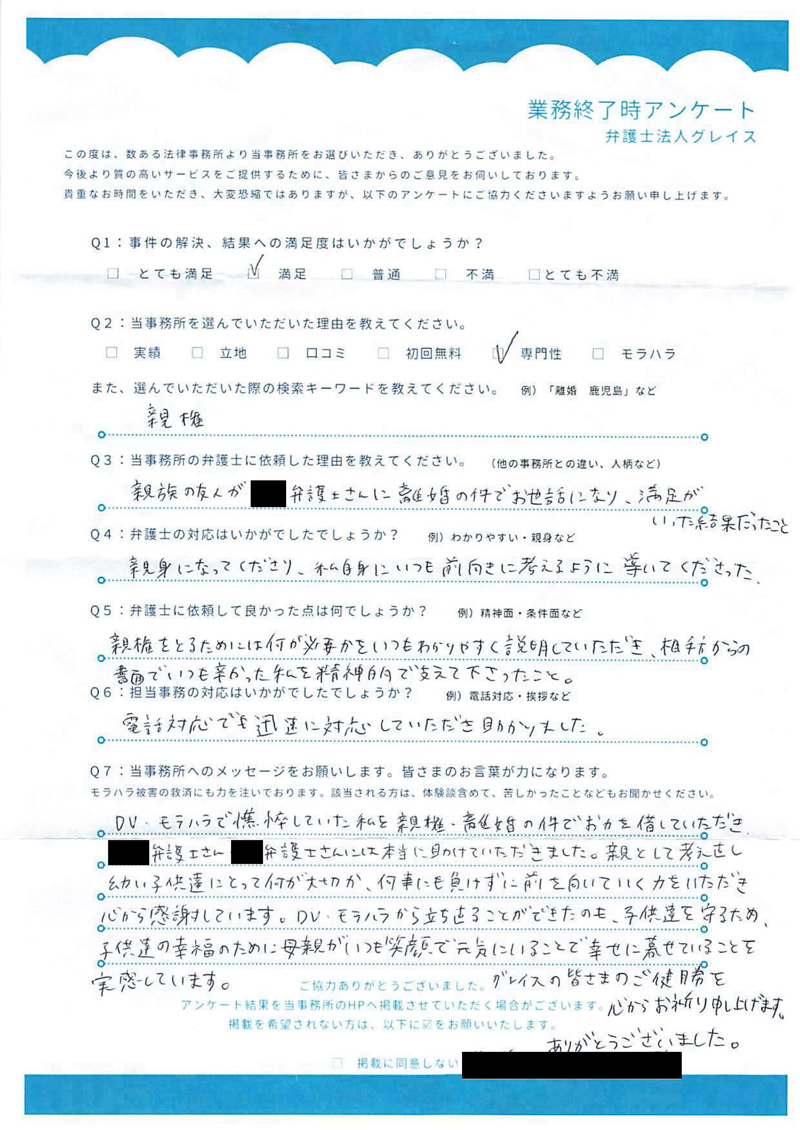 業務終了時アンケート
弁護士法人グレイス
この度は、数ある法律事務所より当事務所をお選びいただき、ありがとうございました。
今後より質の高いサービスをご提供するために、皆さまからのご意見をお伺いしております。
貴重なお時間をいただき、大変恐縮ではありますが、以下のアンケートにご協力くださいますようお願い申し上げます。
Q1：事件の解決、結果への満足度はいかがでしょうか？
□ とても満足 ☑ 満足 □ 普通 □ 不満 □とても不満
Q2：当事務所を選んでいただいた理由を教えてください。
□ 実績 □ 立地 □ 口コミ □ 初回無料 ☑ 専門性 □ モラハラ
また、選んでいただいた際の検索キーワードを教えてください。 例）「離婚 鹿児島」など
親権
Q3：当事務所の弁護士に依頼した理由を教えてください。 （他の事務所との違い、人柄など）
親族の友人が 弁護士さんに離婚の件でお世話になり、満足が
いった結果だったこと
Q4：弁護士の対応はいかがでしたでしょうか？ 例）わかりやすい・親身など
親身になってくださり、私自身にいつも前向きに考えるように導いてくださった、
Q5：弁護士に依頼して良かった点は何でしょうか？ 例）精神面・条件面など
親権をとるためには何が必要かをいつもわかりやすく説明していただき、相手方からの
書面でいつも辛かった私を精神的で支えて下さったこと。
Q6：担当事務の対応はいかがでしたでしょうか？ 例）電話対応・挨拶など
電話対応でも迅速に対応していただき助かりました。
Q7：当事務所へのメッセージをお願いします。皆さまのお言葉が力になります。
モラハラ被害の救済にも力を注いでおります。該当される方は、体験談含めて、苦しかったことなどもお聞かせください。
DV・モラハラで憔悴していた私を親権・離婚の件でお力を借していただき
弁護士さん 弁護士さんには本当に助けていただきました。親として考え直し
幼い子供達にとって何が大切か、何事にも負けずに前を向いていく力をいただき
心から感謝しています。DV・モラハラから立ち去ることができたのも、子供達を守るため、
子供達の幸福のために母親がいつも笑顔で元気にいることで幸せに暮せていることを
実感しています。
ご協力ありがとうございました。
グレイスの皆さまのご健勝を
アンケート結果を当事務所のHPへ掲載させていただく場合がございます。
心からお祈り申し上げます。
掲載を希望されない方は、以下に☑をお願いいたします。
ありがとうございました。
□ 掲載に同意しない